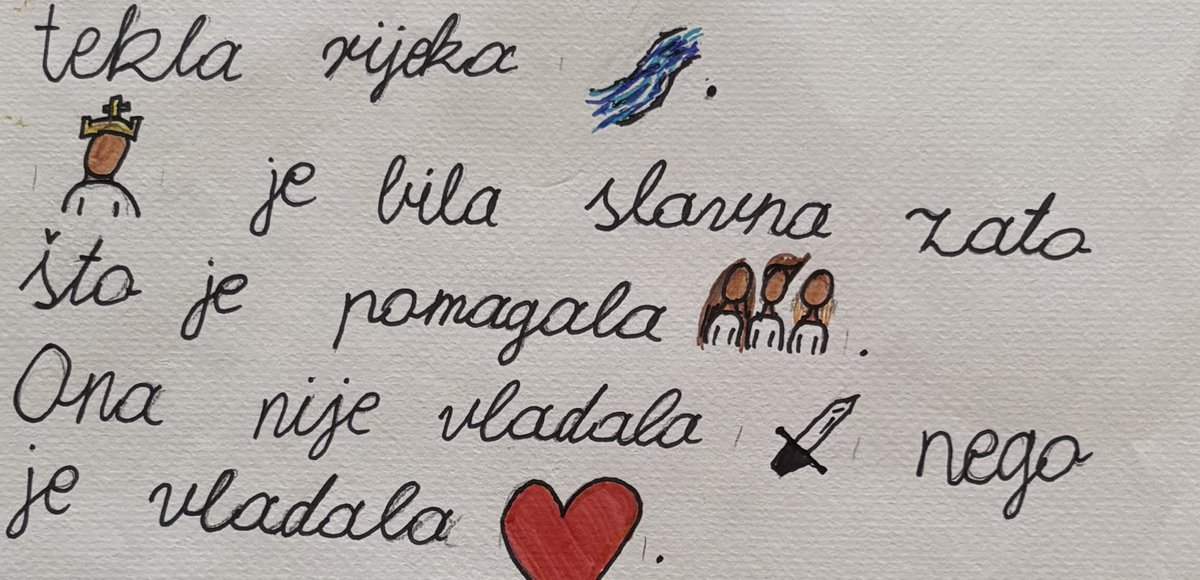 tekla rijeka .
je bila slavna zato
što je pomagala .
Ona nije vladala nego
je vladala .